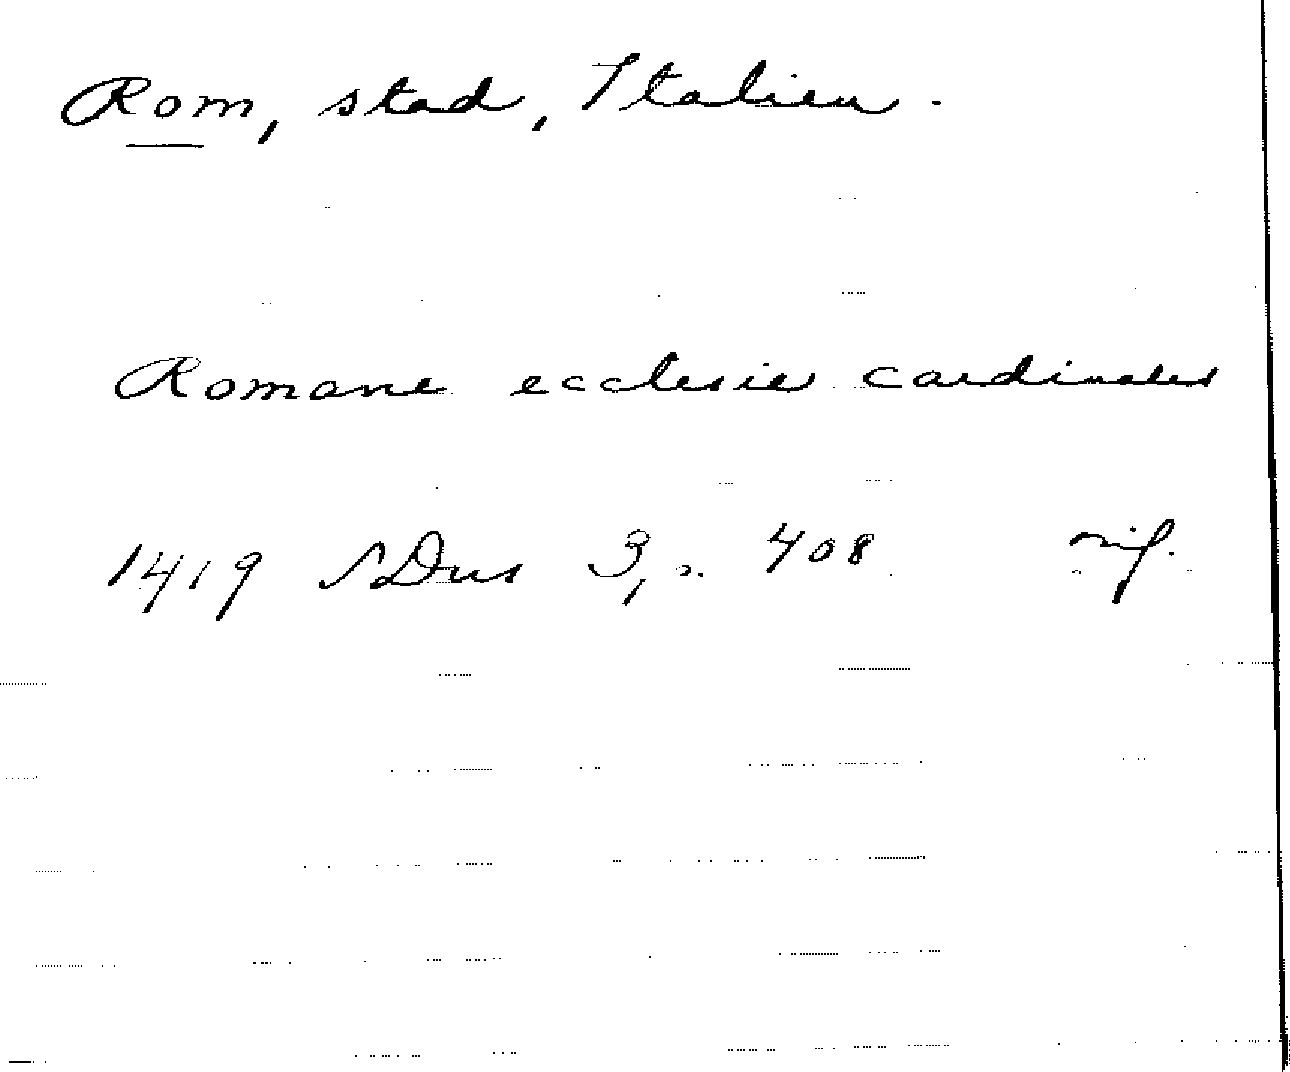 Rom, stad, Italien.
Romane ecclesie cardinales
1419 SDns 3, s. 408